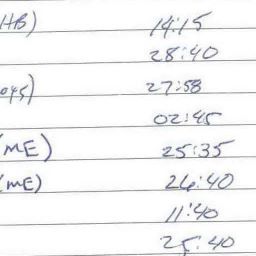 HB) 14:15
28:40
27:58
02:45
(ME) 25:35
(ME) 26:40
11:40
25:40